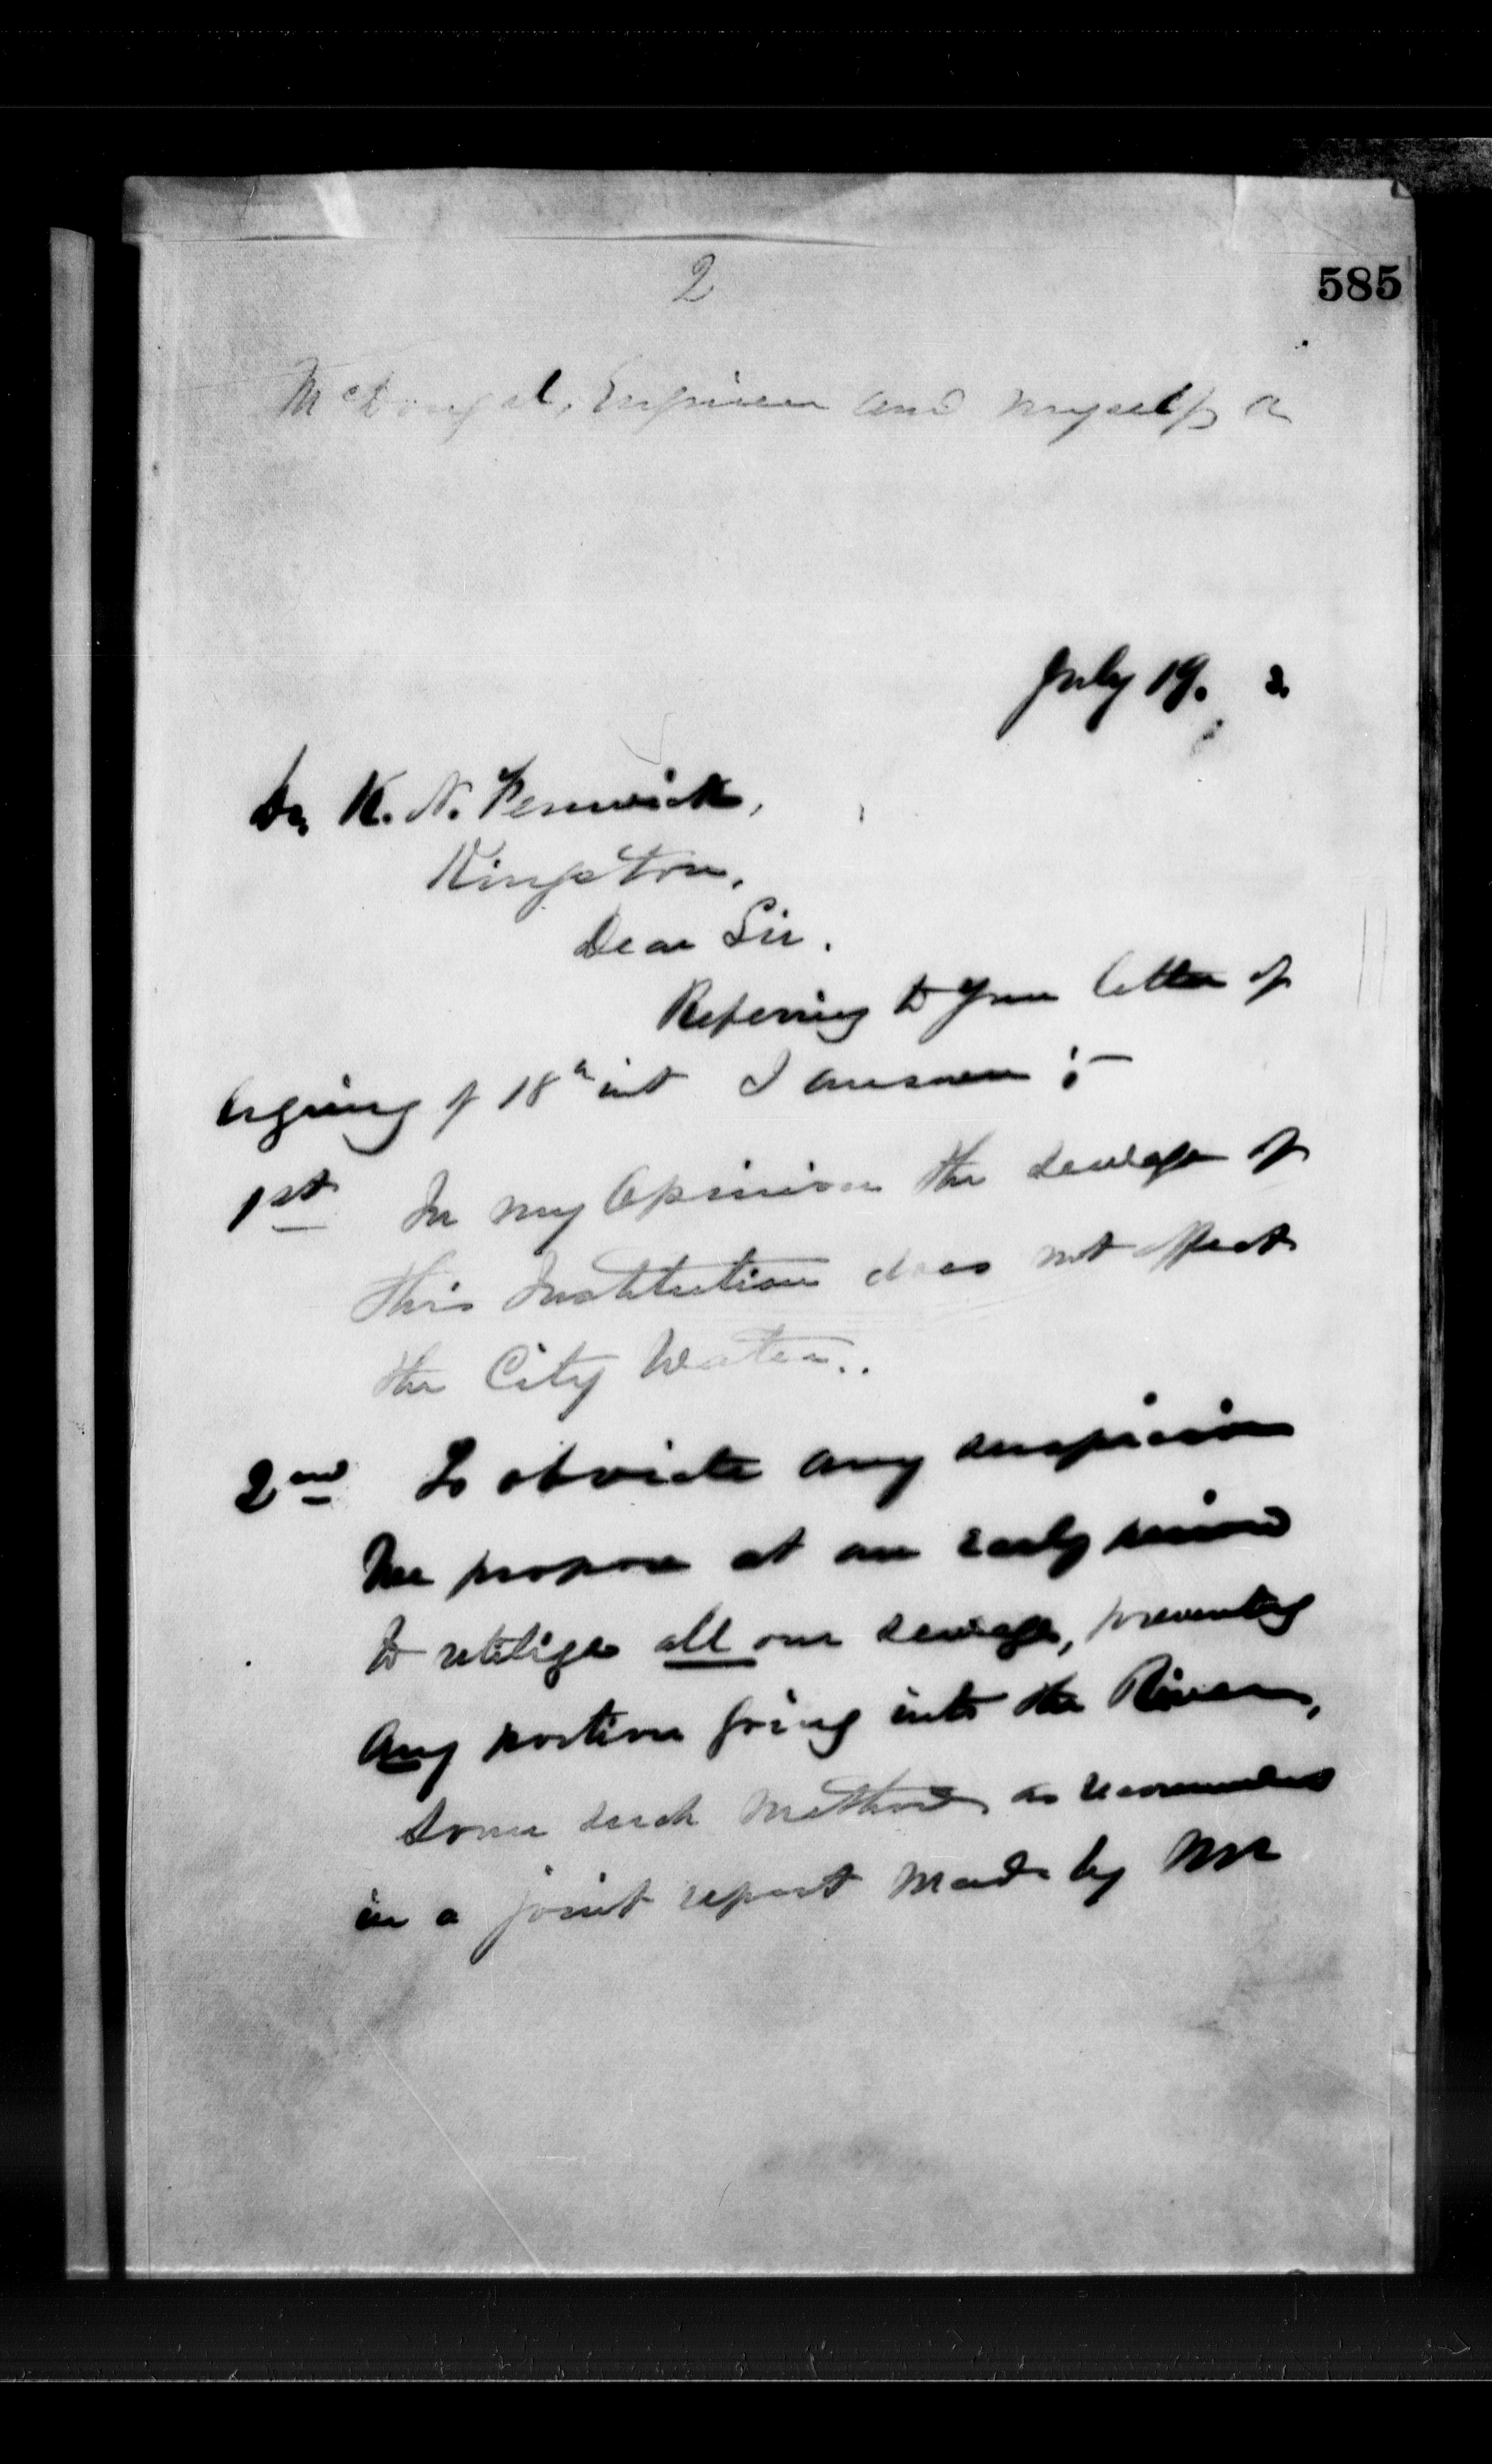 2
585
McDougal, Engineer and myself, a
July 19. 2.
Dr. K. N. Fenwick,
Kingston.
Dear Sir.
Referring to your letter of
of 18th inst I answer :-
1st In my Opinion the sewage of
this Institution does not effect
the City Water..
2nd To obviate any suspicion
We propose at an early period
to utilize all our sewage, preventing
any portion going into the River,
some such method as recommended
in a joint report made by Mr